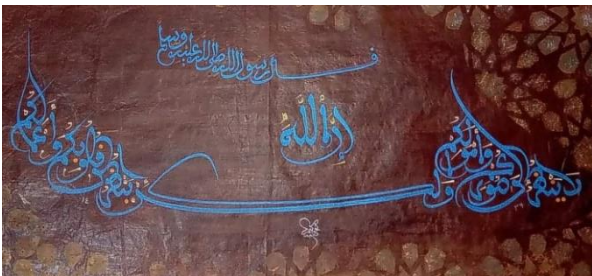 قال رسول الله صلى الله عليه وسلم
إن الله
لا ينظر إلى صوركم وأموالكم ولكن ينظر إلى قلوبكم وأعمالكم